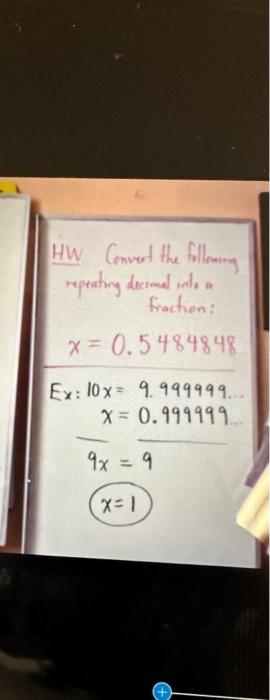 HW Convert the following
repeating decimal into a
fraction:
x = 0.5484848
Ex: 10x = 9.999999...
x = 0.999999...
9x = 9
x=1